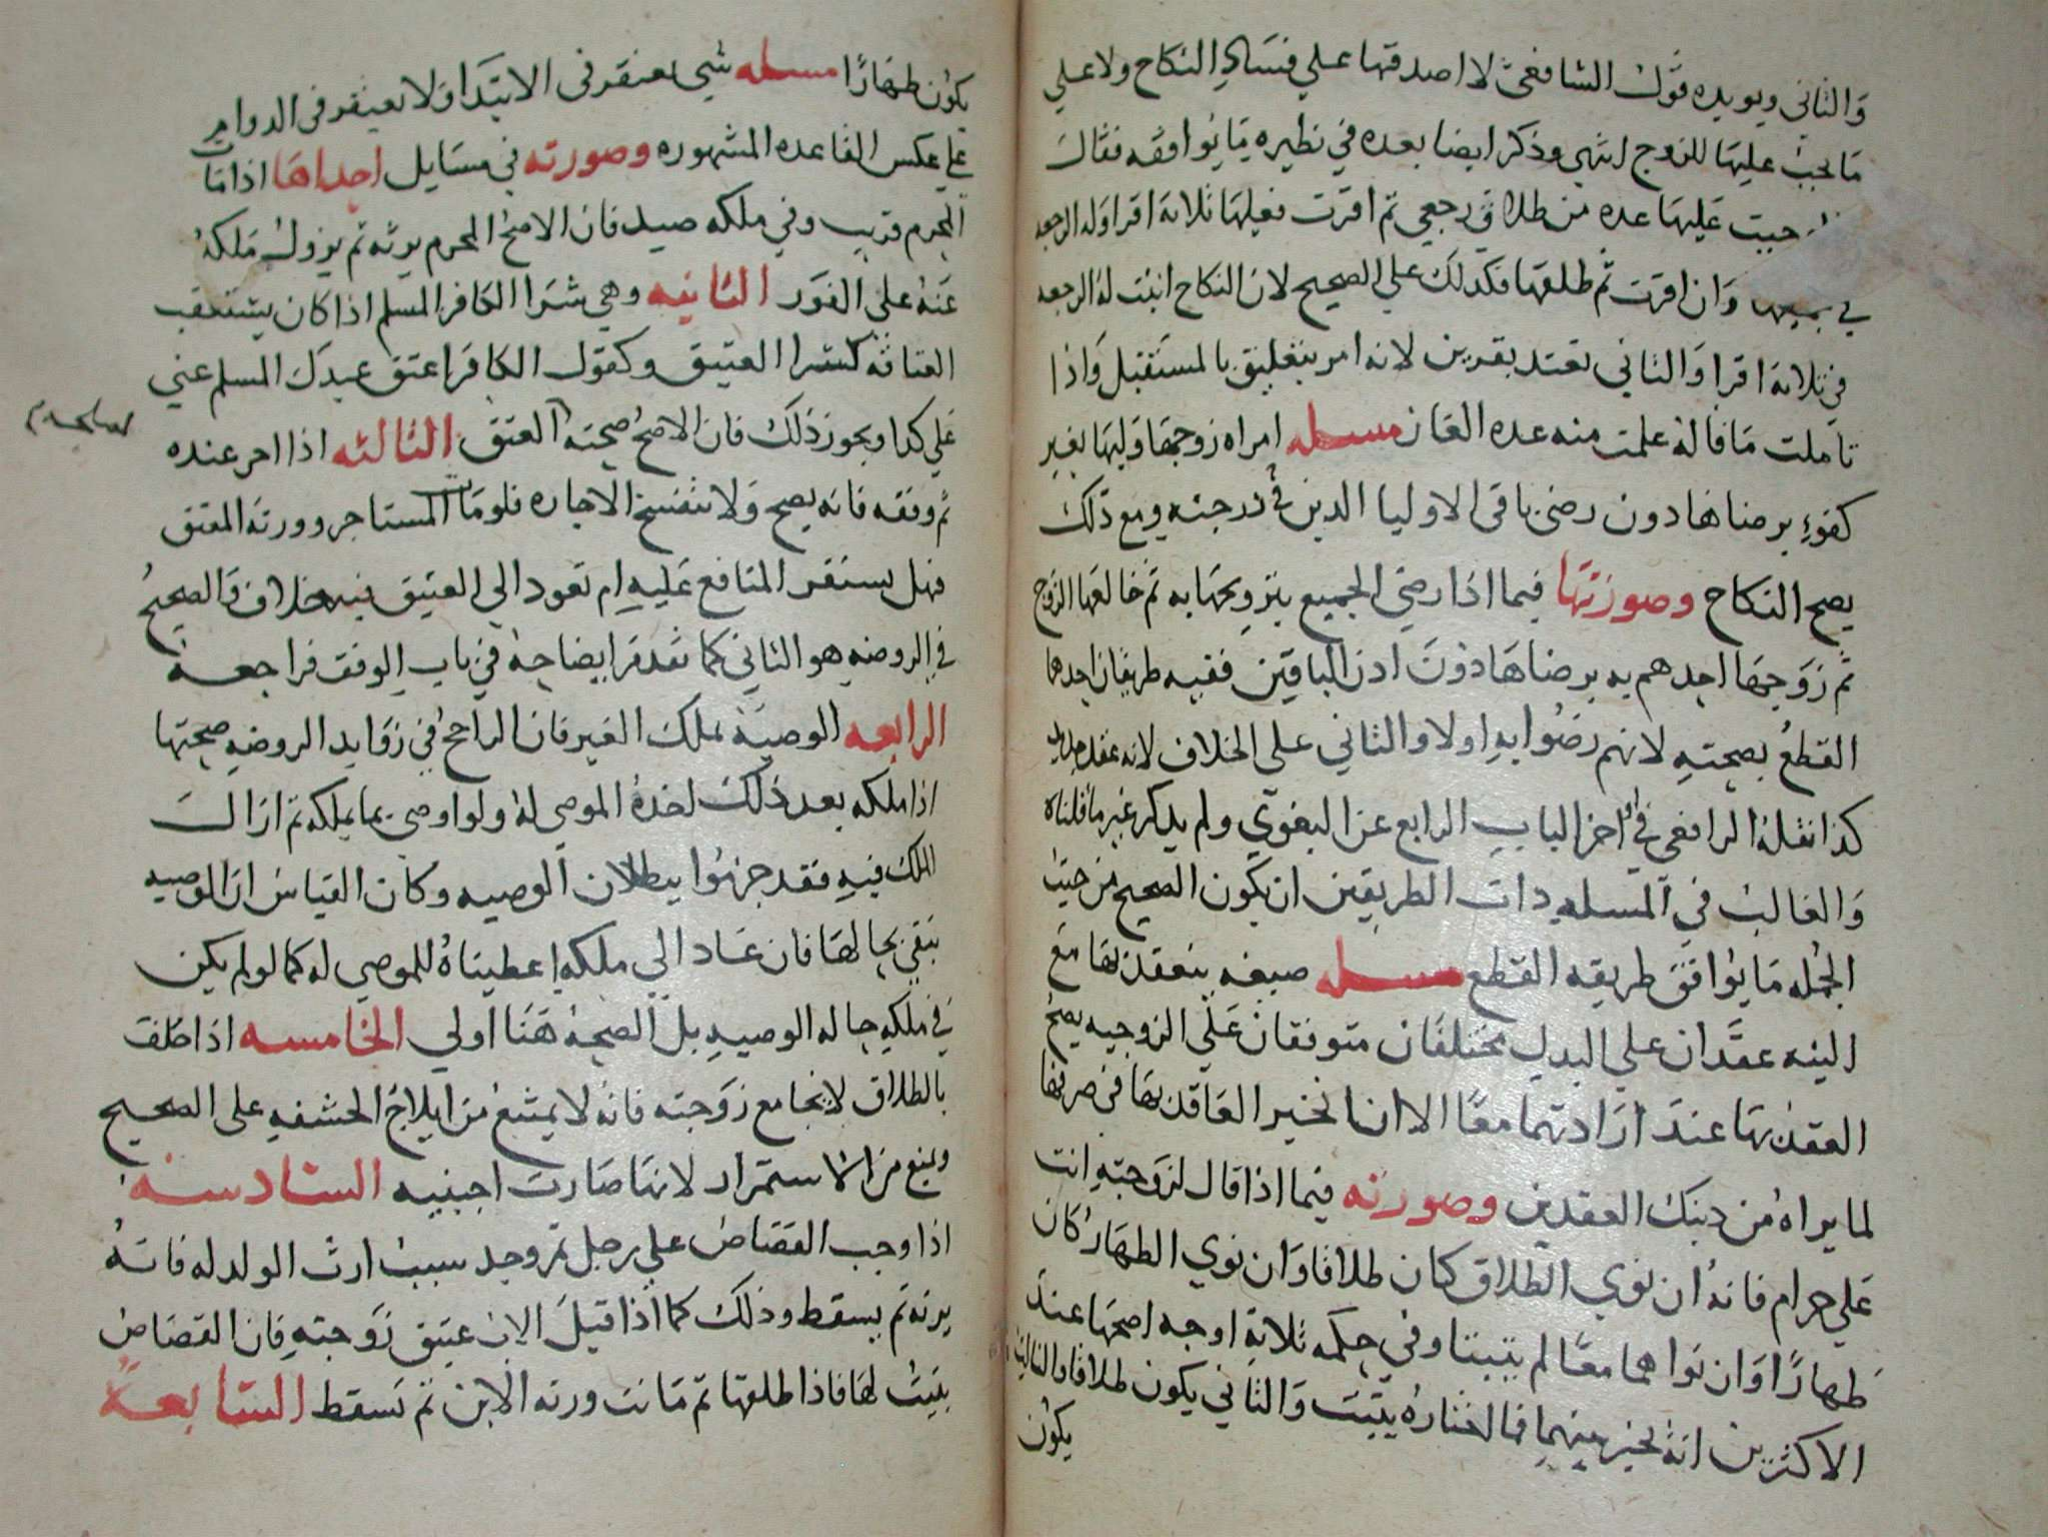 والثاني ويويده قول الشافعي لا اصدقها علي فساد النكاح ولا علي
ما يجب عليها للزوج انتهي وذكر ايضا بعده في نظيره ما يوافقه فقال
وجبت عليها عده من طلاق رجعي ثم اقرت فعليها ثلاثة اقرا وله الرجعه
في وان اقرت ثم طلقها فكذلك علي الصحيح لان النكاح اثبت له الرجعه
في ثلاثة اقرا والثاني تعتد بقرين لانه امر يتعلق بالمستقبل واذا
تاملت ما قاله علمت منه عده الغان مسله امراه زوجها وليها بغير
كفوء برضاها دون رضي باقي الاوليا الذين في درجته ومع ذلك
يصح النكاح وصورتها فيما اذا رضي الجميع بتزويجها به ثم خالعها الزوج
ثم زوجها احدهم به برضاها دون اذن الباقين ففيه طريقان احدهما
القطع بصحته لانهم رضوا به اولا والثاني علي الخلاف لانه عقد جديد
كذا نقله الرافعي في اخر الباب الرابع عن البغوي ولم يذكر غير ما قلناه
والغالب في المسله ذات الطريقين ان يكون الصحيح من حيث
الجمله ما يوافق طريقه القطع مسله صيغه ينعقد بها مع
النيه عقدان علي البدل مختلفان متوقفان علي الزوجيه يصح
العقد بها عند ارادتهما معا الا انا نخير العاقد بها في صرفها
لما يراه من ذينك العقدين وصورته فيما اذا قال لزوجته انت
علي حرام فانه ان نوي الطلاق كان طلاقا وان نوي الظهار كان
ظهارا وان نواهما معا لم يثبتا وفي حكمه ثلاثة اوجه اصحها عند
الاكثرين انه يخير بينهما فما اختاره يثبت والثاني يكون طلاقا والثالث
يكون
يكون ظهارا مسله شي يغتفر في الابتدا ولا يغتفر في الدوام
علي عكس القاعده المشهوره وصورته في مسايل احداها اذا مات
لمحرم قريب وفي ملكه صيد فان الاصح المحرم يرثه ثم يزول ملكه
عنه علي الفور الثانيه وهي شرا الكافر المسلم اذا كان يستعقب
العتاقه كشرا العتيق وكقول الكافر اعتق عبدك المسلم عني
علي كذا ويجوز ذلك فان الاصح صحته العتق الثالثه اذا اجر عنده
ثم وقفه فانه يصح ولا تنفسخ الاجاره فلو مات المستاجر وورثه المعتق
فهل يستقر المنافع عليه ام تعود الي العتيق فيه خلاف والصحيح
في الروضه هو الثاني كما تقدم ايضاحه في باب الوقف فراجعه
الرابعه الوصية بملك الغير فان الراجح في زوايد الروضه صحتها
اذا ملكه بعد ذلك اخذه الموصي له ولو اوصي بما يملكه ثم ازال
الملك فيه فقد جزموا ببطلان الوصيه وكان القياس ان الوصيه
تبقي بحالها فان عاد الي ملكه اعطيناه للموصي له كما لو لم يكن
في ملكه حاله الوصيه بل الصحة هنا اولي الخامسه اذا حلف
بالطلاق لا يجامع زوجته فانه لا يمتنع من ايلاج الحشفه علي الصحيح
ويمنع من الاستمرار لانها صارت اجنبيه السادسه
اذا وجب القصاص علي رجل ثم وجد سبب ارث الولد له فانه
يرثه ثم يسقط وذلك كما اذا قتل الابن عتيق زوجته فان القصاص
يثبت لها فاذا طلقها ثم ماتت ورثه الابن ثم تسقط السابعة